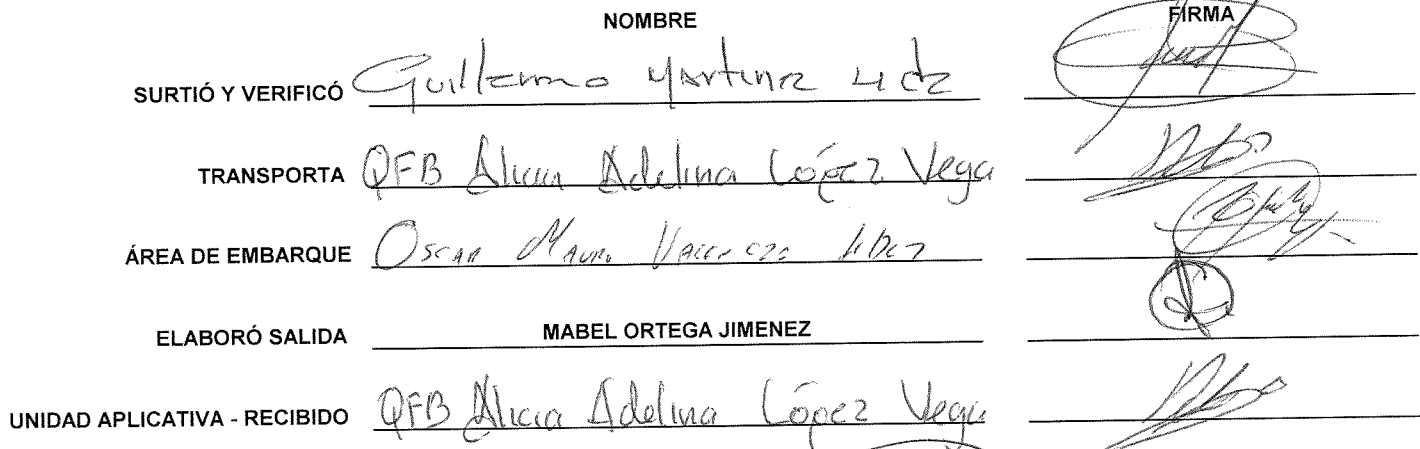 NOMBRE FIRMA
SURTIÓ Y VERIFICÓ Guillermo Martinez
TRANSPORTA QFB Alicia Adelina López Vega
ÁREA DE EMBARQUE Oscar Mauro
ELABORÓ SALIDA MABEL ORTEGA JIMENEZ
UNIDAD APLICATIVA - RECIBIDO QFB Alicia Adelina López Vega